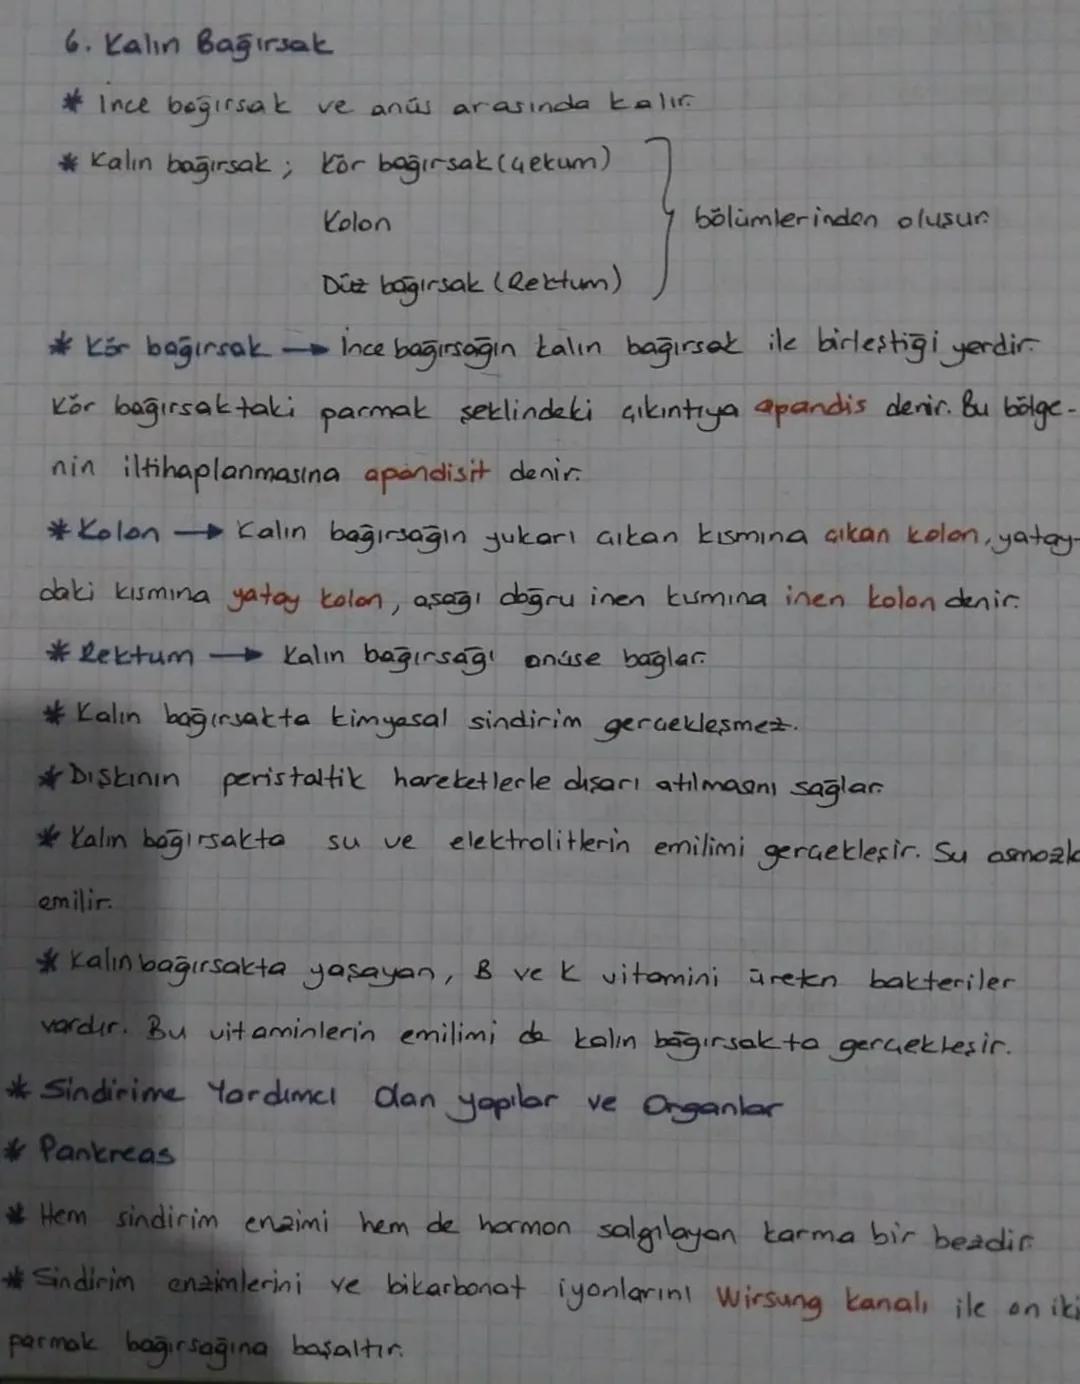 6. Kalın Bağırsak
* İnce bağırsak ve anüs arasında kalır.
* Kalın bağırsak; Kör bağırsak (Çekum)
Kolon
bölümlerinden oluşur.
Düz bağırsak (Rektum)
* Kör bağırsak → İnce bağırsağın kalın bağırsak ile birleştiği yerdir.
Kör bağırsaktaki parmak şeklindeki çıkıntıya apandis denir. Bu bölge-
nin iltihaplanmasına apandisit denir.
* Kolon → Kalın bağırsağın yukarı çıkan kısmına çıkan kolon, yatay-
daki kısmına yatay kolon, aşağı doğru inen kısmına inen kolon denir.
* Rektum → Kalın bağırsağı anüse bağlar.
* Kalın bağırsakta kimyasal sindirim gerçekleşmez.
* Dışkının peristaltik hareketlerle dışarı atılmasını sağlar.
* Kalın bağırsakta su ve elektrolitlerin emilimi gerçekleşir. Su osmozla
emilir.
* Kalın bağırsakta yaşayan, B ve K vitamini üreten bakteriler
vardır. Bu vitaminlerin emilimi de kalın bağırsakta gerçekleşir.
* Sindirime Yardımcı Olan yapılar ve Organlar
* Pankreas
* Hem sindirim enzimi hem de hormon salgılayan karma bir bezdir.
* Sindirim enzimlerini ve bikarbonat iyonlarını Wirsung kanalı ile on iki
parmak bağırsağına boşaltır.